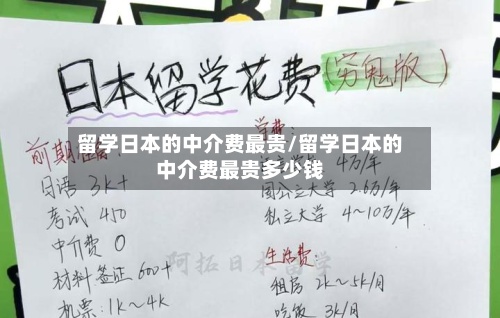 日本留学花费(穷鬼版)
留学日本的中介费最贵/留学日本的
中介费最贵多少钱
前期
学费:
4万/年
日语 3k+
国公立大学 2.6万/年
考试 450
私立大学 4~10万/年
中介费 0
生活费:
材料签证 600+
租房 2k~5k/月
机票:1k~4k
吃饭 3k/月
阿拓日本留学